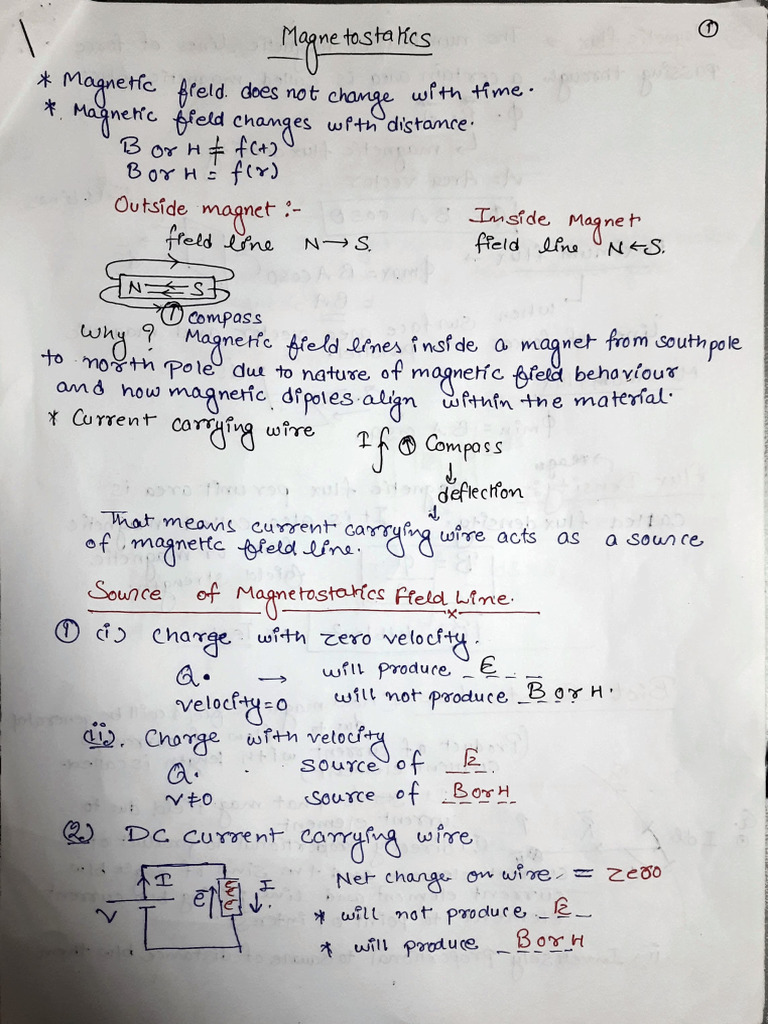 ①
Magnetostatics
* Magnetic field. does not change with time.
*. Magnetic field changes with distance.
B or H ≠ f(t)
B or H = f(r)
Outside magnet :-
field line N→S.
Inside Magnet
field line N←S.
N S
compass
Why? Magnetic field lines inside a magnet from southpole
to north pole due to nature of magnetic field behaviour
and how magnetic dipoles align within the material.
* Current carrying wire I Compass
↓
deflection
↓
That means current carrying wire acts as a source
of magnetic field line.
Source of Magnetostatics Field Line.
① (i) Charge with zero velocity.
Q. → will produce E
velocity=0 will not produce B or H.
(ii). Charge with velocity
Q. source of E
v≠0 source of B or H
(2) DC current carrying wire
I V e⁻ I
Net change on wire = zero
* will not produce E
* will produce B or H